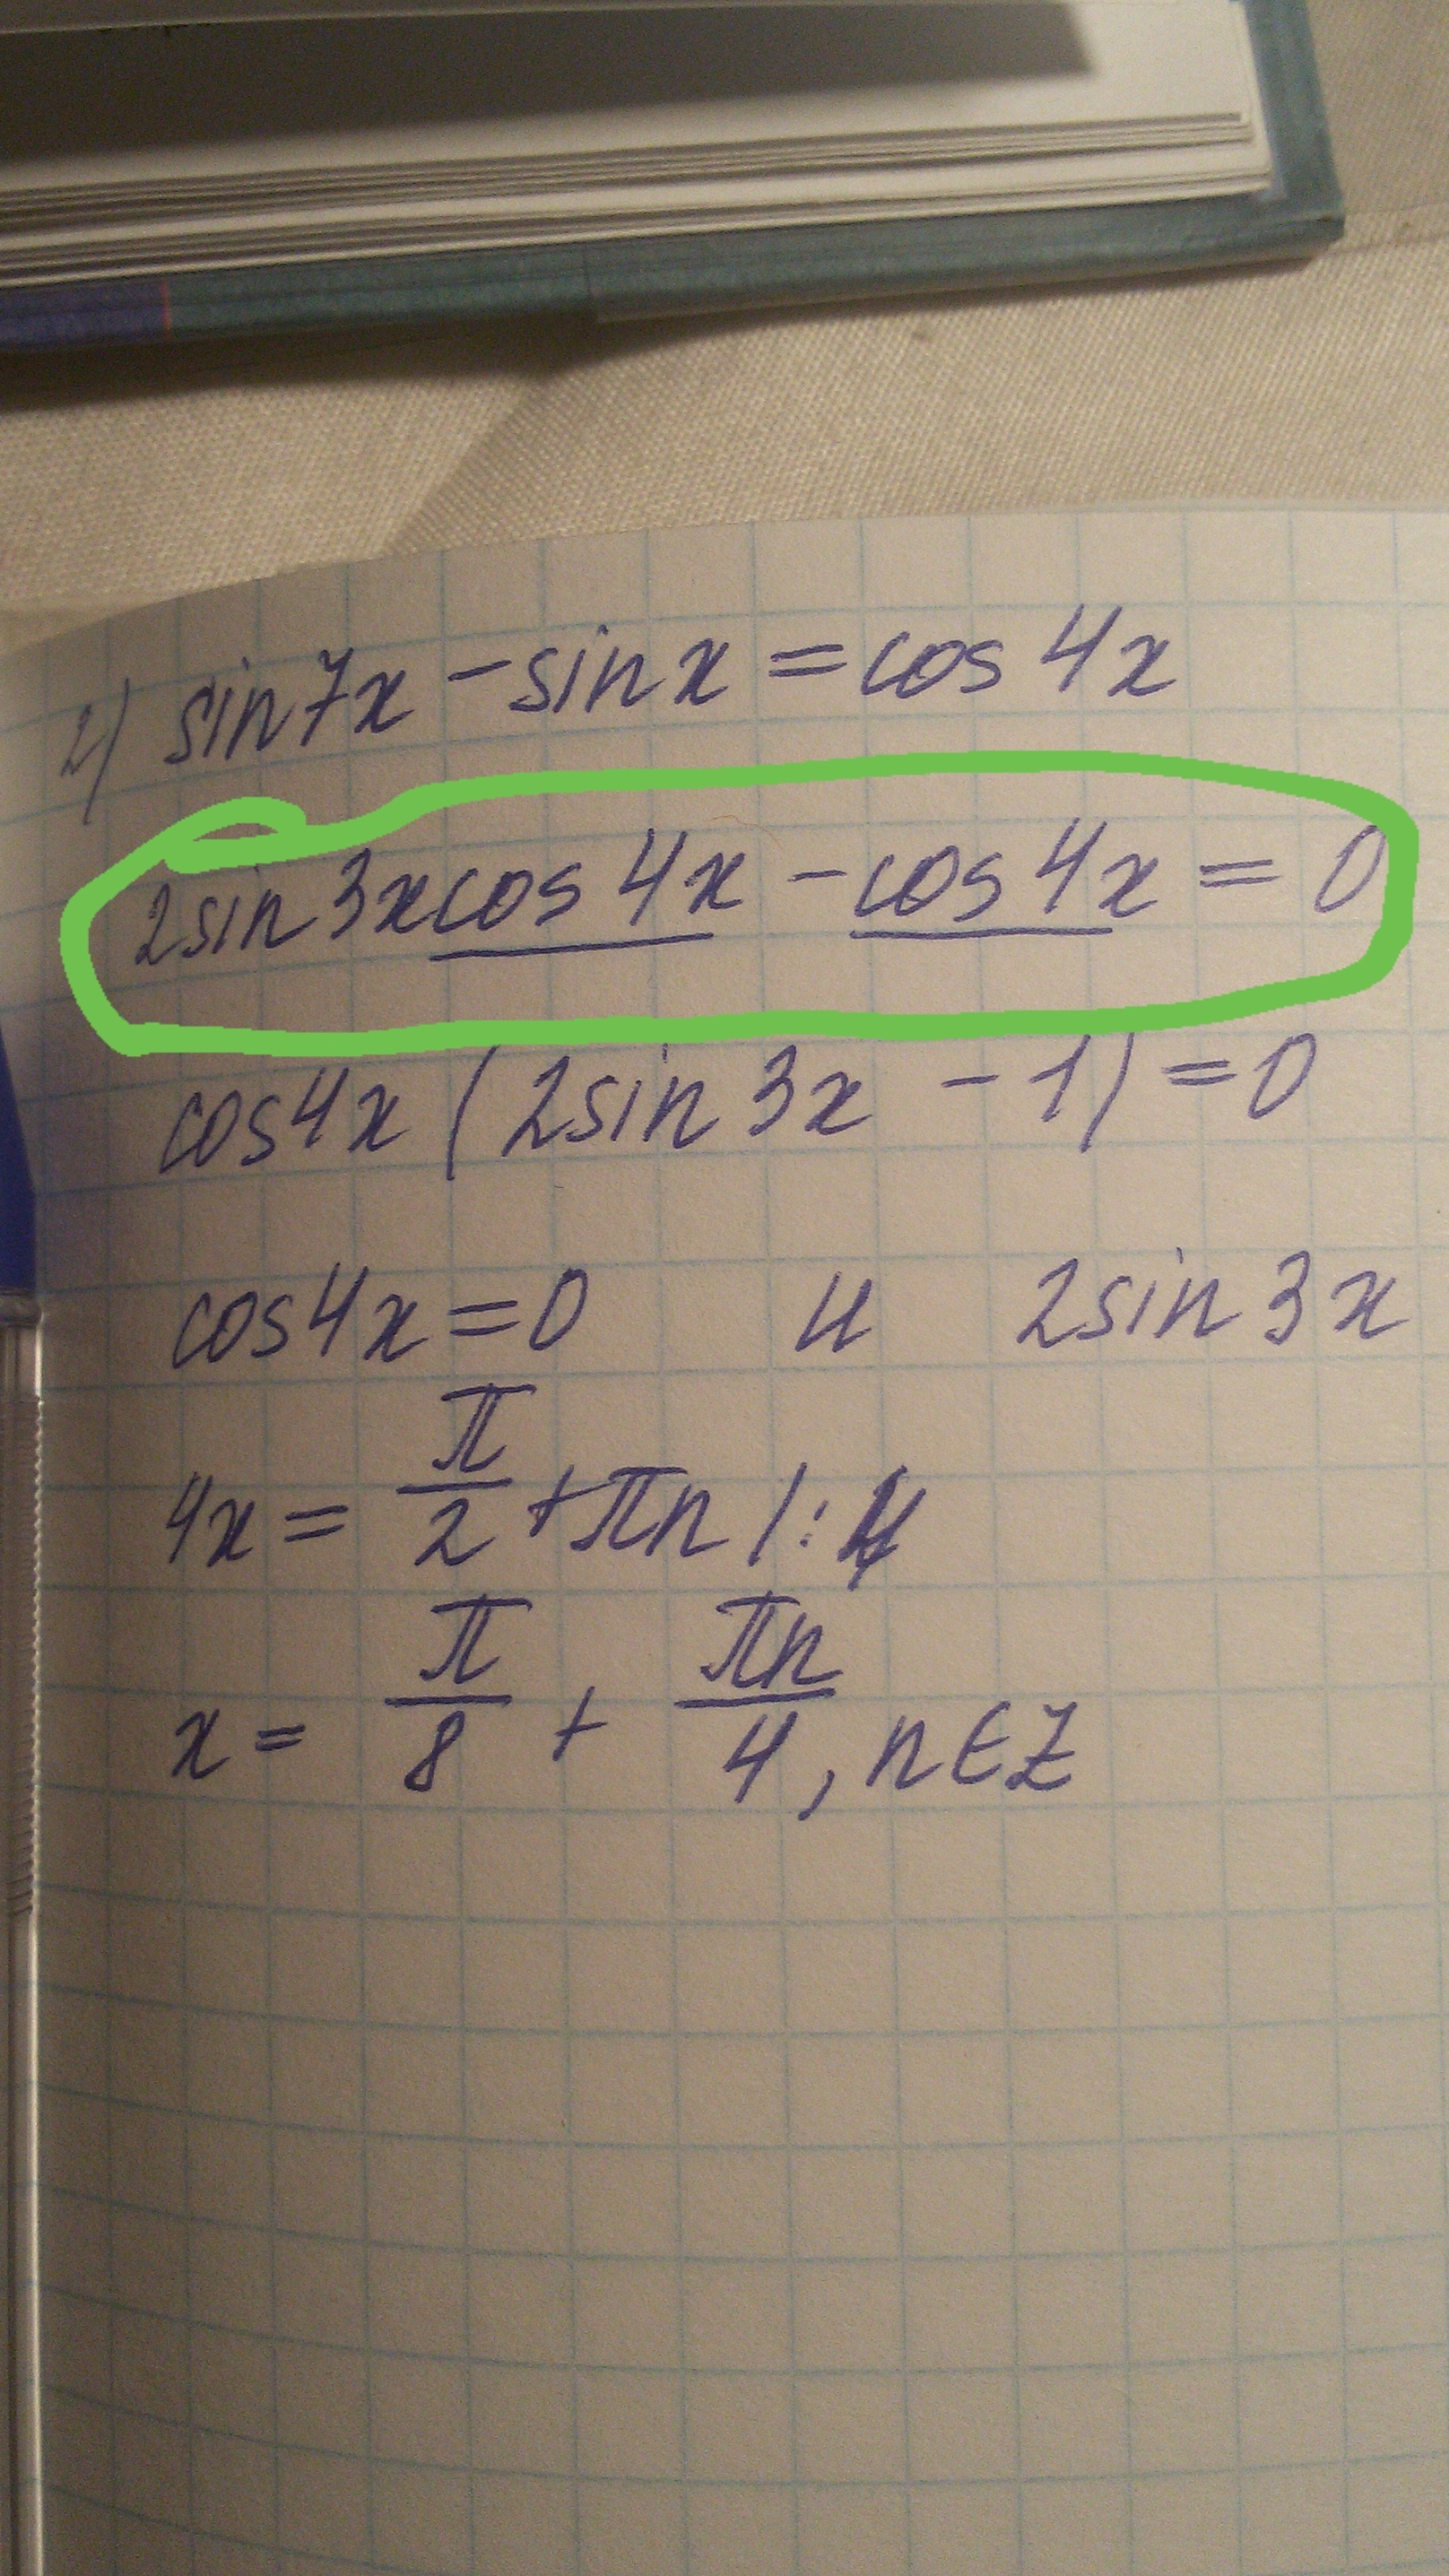 2) sin7x - sinx = cos 4x
2sin 3xcos 4x - cos 4x = 0
cos4x (2sin 3x - 1) = 0
cos4x = 0 и 2sin 3x
4x = π/2 + πn |: 4
x = π/8 + πn/4, n∈Z